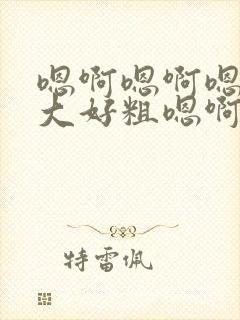 嗯啊嗯啊嗯
大好粗嗯啊
特雷佩